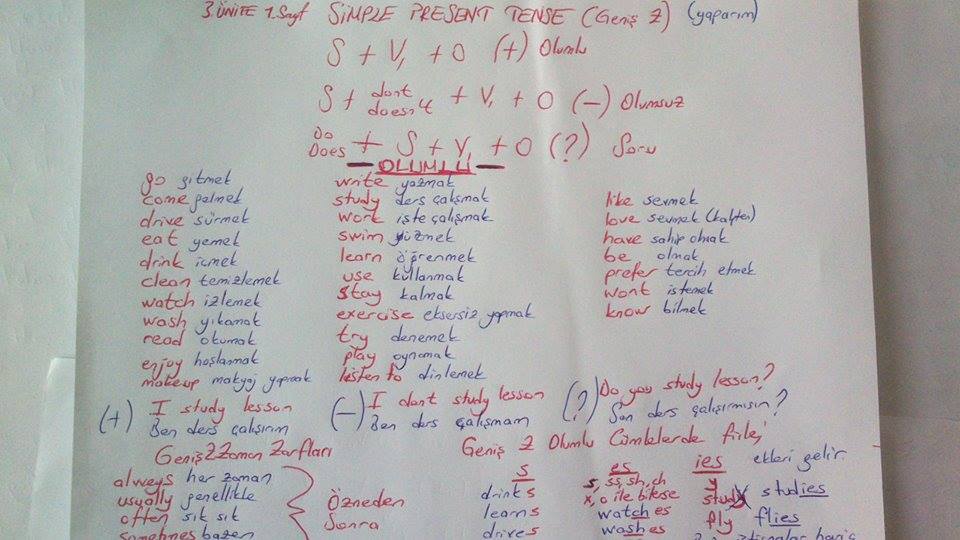 3. ÜNİTE 1. Sayf SİMPLE PRESENT TENSE (Geniş Z) (yaparım)
S + V₁ + O (+) Olumlu
S + dont doesn't + V₁ + O (-) Olumsuz
Do Does + S + V₁ + O (?) Soru
OLUMLU
go gitmek
come gelmek
drive sürmek
eat yemek
drink içmek
clean temizlemek
watch izlemek
wash yıkamak
read okumak
enjoy hoşlanmak
makeup makyaj yapmak
write yazmak
study ders çalışmak
work işte çalışmak
swim yüzmek
learn öğrenmek
use kullanmak
stay kalmak
exercise eksersiz yapmak
try denemek
play oynamak
listen to dinlemek
like sevmek
love sevmek (kalpten)
have sahip olmak
be olmak
prefer tercih etmek
want istemek
know bilmek
(+) I study lesson
Ben ders çalışırım
(-) I dont study lesson
Ben ders çalışmam
(?) Do you study lesson?
Sen ders çalışırmısın?
Geniş Z Zaman Zarfları
always her zaman
usually genellikle
often sık sık
sometimes bazen
Özneden
Sonra
Geniş Z Olumlu Cümlelerde fiile,
s
drinks
learns
drives
es
s, ss, sh, ch
x, o ile biterse
watches
washes
ies ekleri gelir.
y
study studies
fly flies